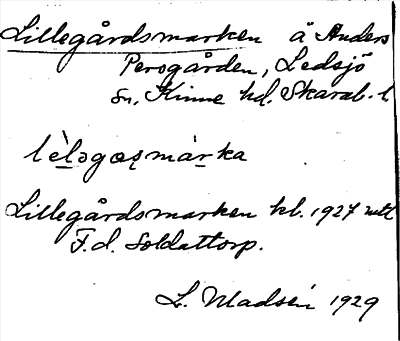 Lillegårdsmarken å Anders
Persgården, Ledsjö
sn, Kinne hd. Skarab. l.
lèlǝgœʂmàrka
Lillegårdsmarken kb. 1927
F.d. Soldattorp.
L. Madsén 1929